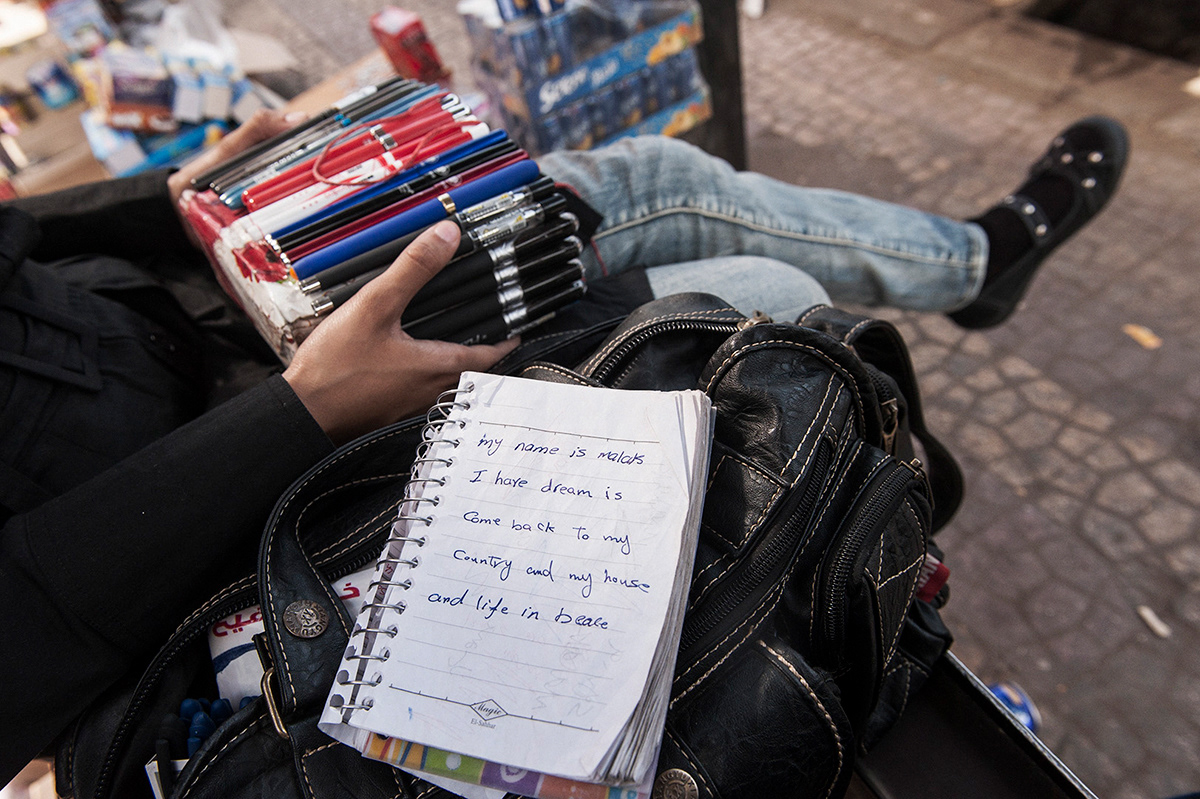 my name is malak
I have dream is
Come back to my
Country and my house
and life in beace
Magic
El-Sahhar